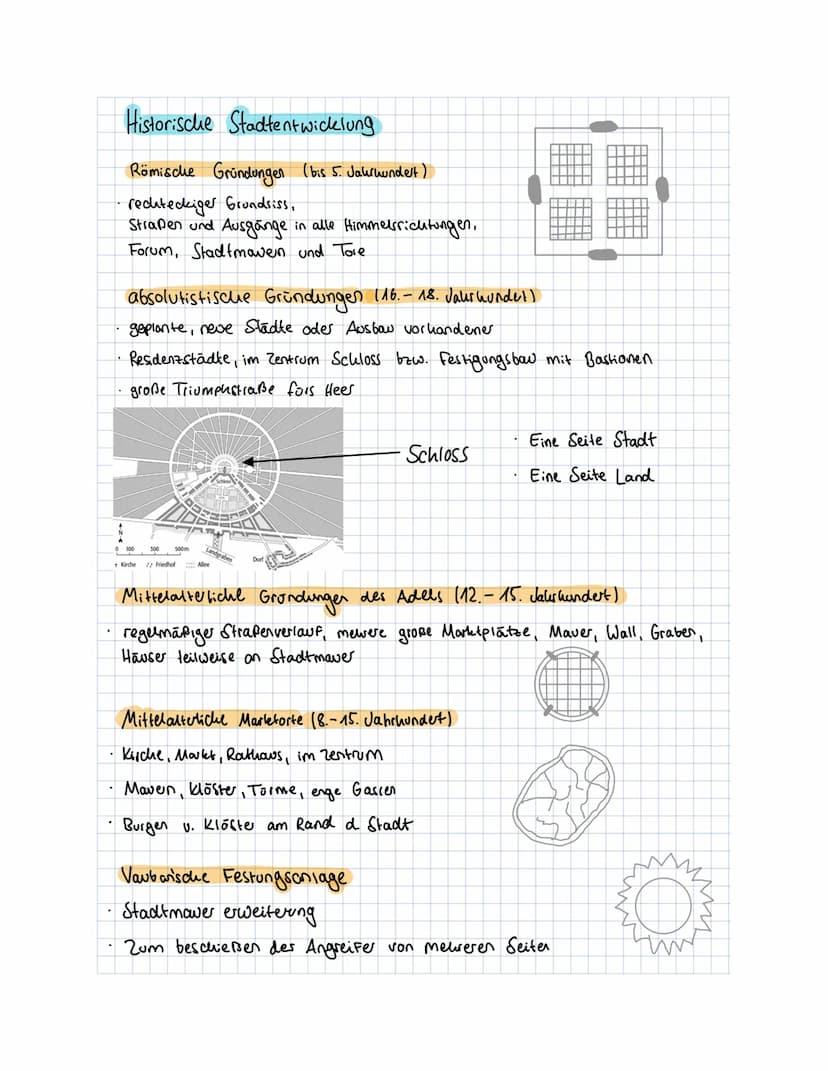 Historische Stadtentwicklung
Römische Gründungen (bis 5. Jahrhundert)
· rechteckiger Grundriss,
Straßen und Ausgänge in alle Himmelsrichtungen,
Forum, Stadtmauern und Tore
absolutistische Gründungen (16.- 18. Jahrhundert)
· geplante, neue Städte oder Ausbau vorhandener
· Residenzstädte, im Zentrum Schloss bzw. Festigungsbau mit Bastionen
· große Triumphstraße fürs Heer
Schloss
· Eine Seite Stadt
· Eine Seite Land
Schloss
N
0 100 300 500m
Landgraben
Dorf
Kirche Friedhof Allee
Mittelalterliche Gründungen des Adels (12.- 15. Jahrhundert)
· regelmäßiger Straßenverlauf, mehrere große Marktplätze, Mauer, Wall, Graben,
Häuser teilweise an Stadtmauer
Mittelalterliche Marktorte (8.-15. Jahrhundert)
· Kirche, Markt, Rathaus, im Zentrum
· Mauern, Klöster, Türme, enge Gassen
· Burgen u. Klöster am Rand d Stadt
Vauban'sche Festungsanlage
· Stadtmauer erweiterung
· Zum beschießen des Angreifer von mehreren Seiten